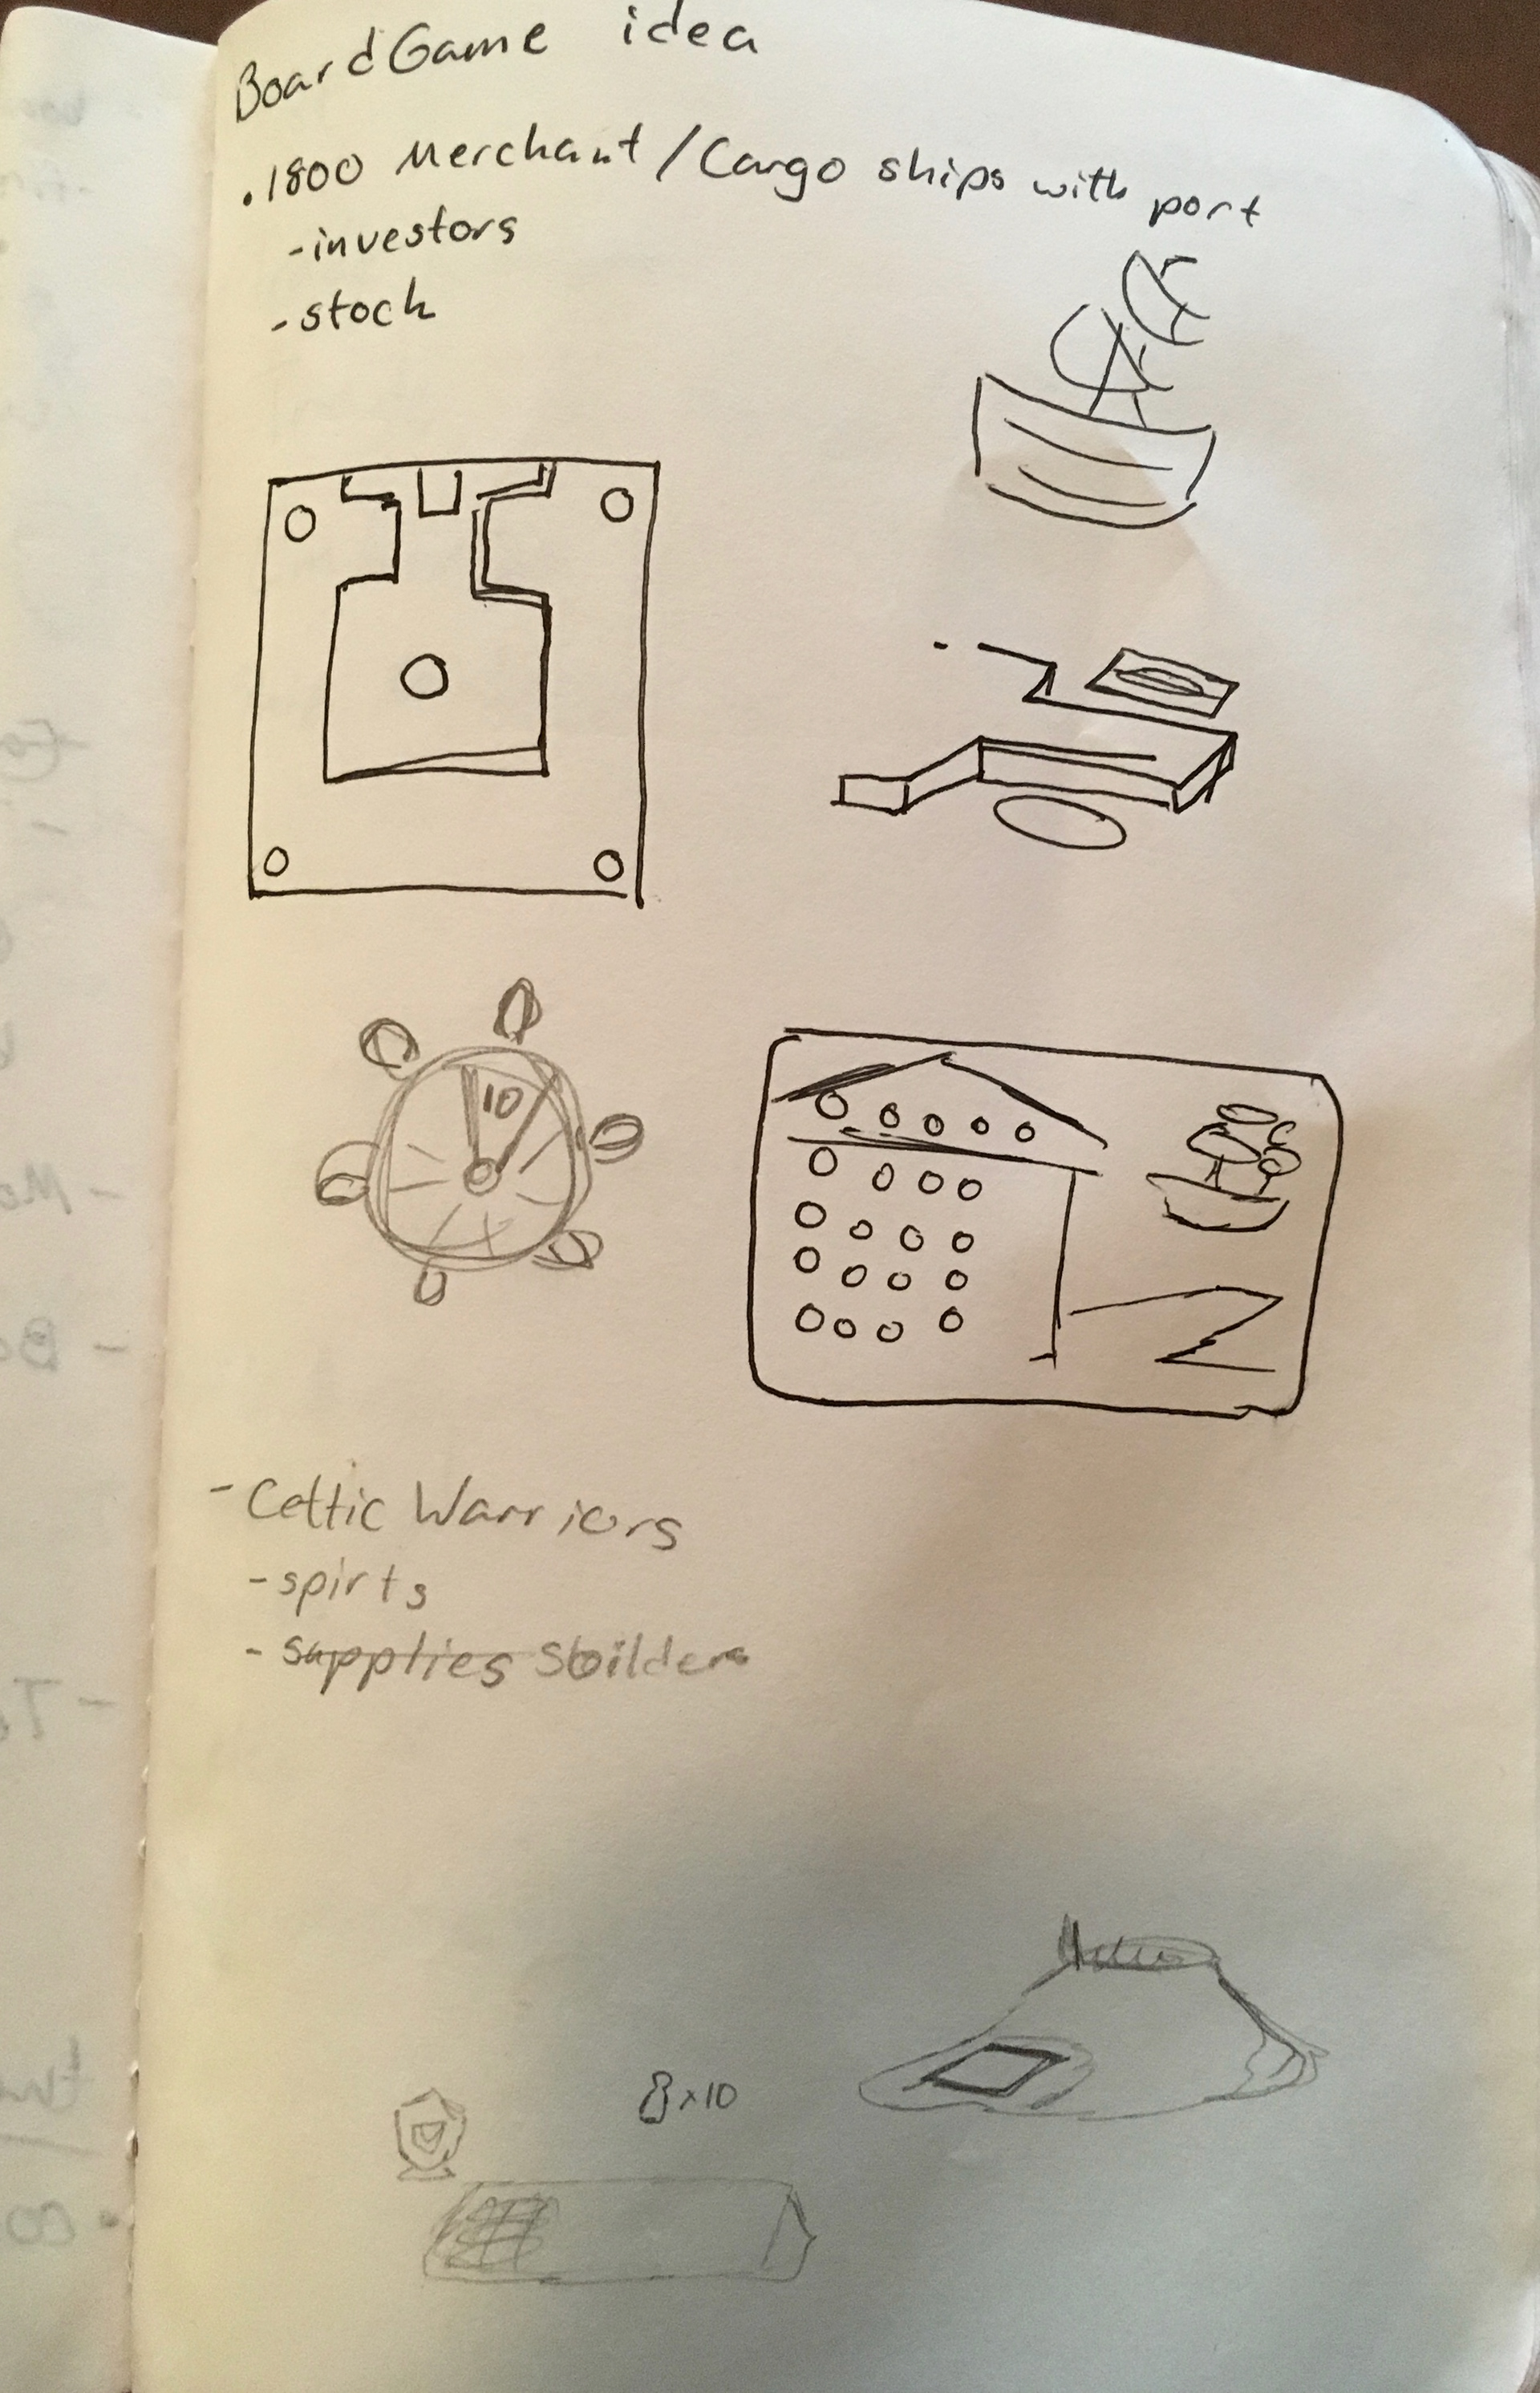 BoardGame idea
. 1800 Merchant / Cargo ships with port
- investors
- stock
10
- Celtic Warriors
- spirts
- supplies
8x10